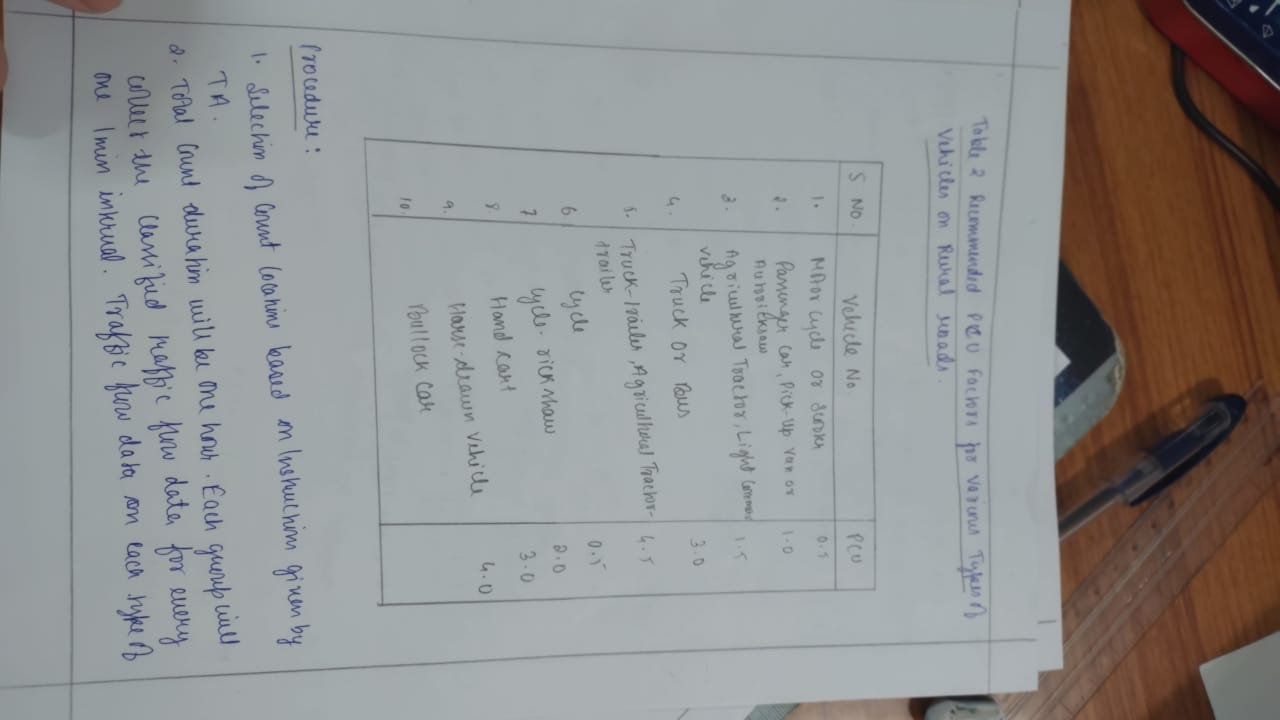 Table 2 Recommended PCU Factors for Various Types of
Vehicles on Rural roads.
S No. Vehicle No. PCU
1. Motor cycle or Scooter 0.5
2. Passenger Car, Pick-Up Van or 1.0
Autoricksaw
3. Agricultural Tractor, Light Commer 1.5
vehicle
4. Truck Or Bus 3.0
5. Truck-trailer, Agricultural Tractor- 4.5
trailer
6 Cycle 0.5
7 Cycle-rickshaw 2.0
8. Hand cart 3.0
9. Horse-drawn vehicle 4.0
10. Bullock Car
Procedure:
1. Selection of Count locations based on Instructions given by
TA.
2. Total Count duration will be one hour. Each group will
collect the classified traffic flow data for every
one 1min interval. Traffic flow data on each type of